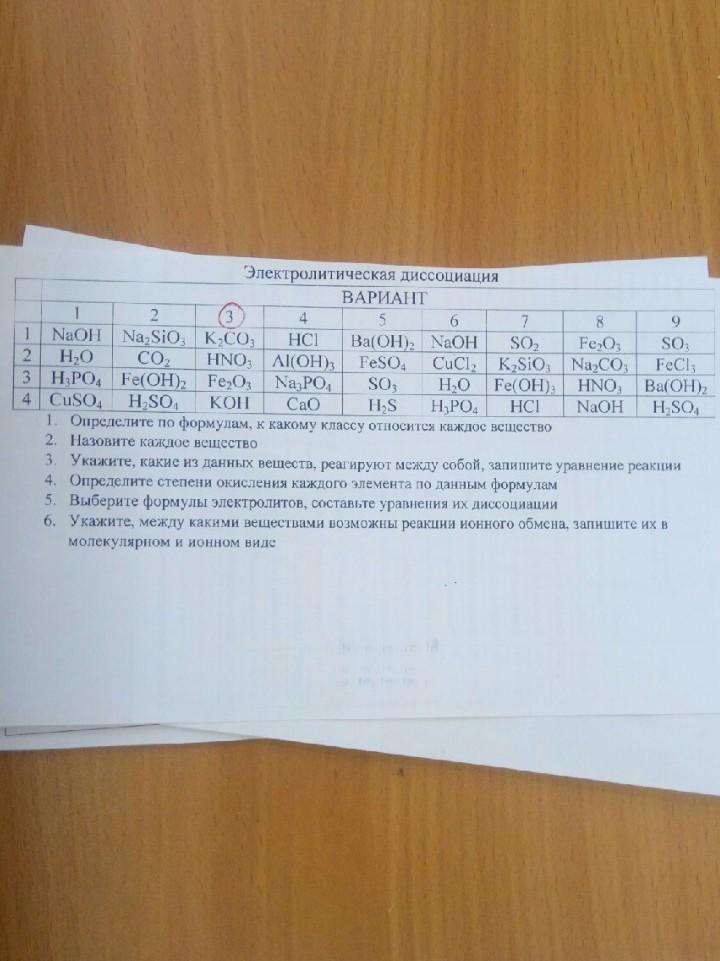 Электролитическая диссоциация
ВАРИАНТ
1 2 3 4 5 6 7 8 9
1 NaOH Na₂SiO₃ K₂CO₃ HCl Ba(OH)₂ NaOH SO₂ Fe₂O₃ SO₃
2 H₂O CO₂ HNO₃ Al(OH)₃ FeSO₄ CuCl₂ K₂SiO₃ Na₂CO₃ FeCl₃
3 H₃PO₄ Fe(OH)₂ Fe₂O₃ Na₃PO₄ SO₃ H₂O Fe(OH)₃ HNO₃ Ba(OH)₂
4 CuSO₄ H₂SO₄ KOH CaO H₂S H₃PO₄ HCl NaOH H₂SO₄
1. Определите по формулам, к какому классу относится каждое вещество
2. Назовите каждое вещество
3. Укажите, какие из данных веществ, реагируют между собой, запишите уравнение реакции
4. Определите степени окисления каждого элемента по данным формулам
5. Выберите формулы электролитов, составьте уравнения их диссоциации
6. Укажите, между какими веществами возможны реакции ионного обмена, запишите их в
молекулярном и ионном виде